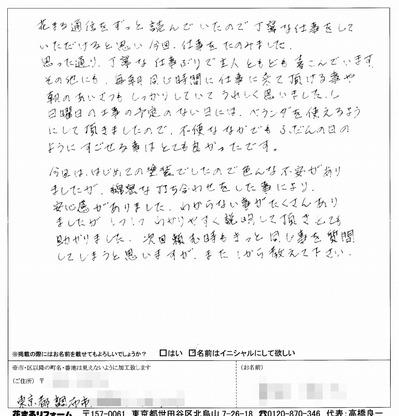 花まる通信をずっと読んでいたので丁寧な仕事をして
いただけると思い今回、仕事をたのみました。
思った通り、丁寧な仕事ぶりで主人ともども喜こんでいます。
その他にも、毎朝同じ時間に仕事に来て頂ける事や
朝のあいさつもしっかりしていてうれしく思いました。
日曜日の工事の予定のない日には、ベランダを使えるよう
にして頂きましたので、不便ななかでもふだんの日の
ようにすごせる事はとても良かったです。
今回は、はじめての塗装でしたので色んな不安があり
ましたが、綿密な打ち合わせをした事により、
安心感がありました。わからない事がたくさんあり
ましたが1つ1つわかりやすく説明して頂きとても
助かりました。次回頼む時もきっと同じ事を質問
してしまうと思いますが、また1から教えて下さい。
※掲載の際にはお名前を載せてもよろしいでしょうか? □はい ☑名前はイニシャルにして欲しい
※市・区以降の町名・番地は見えないように加工致します
(ご住所) 〒
(お名前)
東京都調布市
花まるリフォーム 〒157-0061 東京都世田谷区北烏山7-26-18 ☎0120-870-346 代表:高橋良一